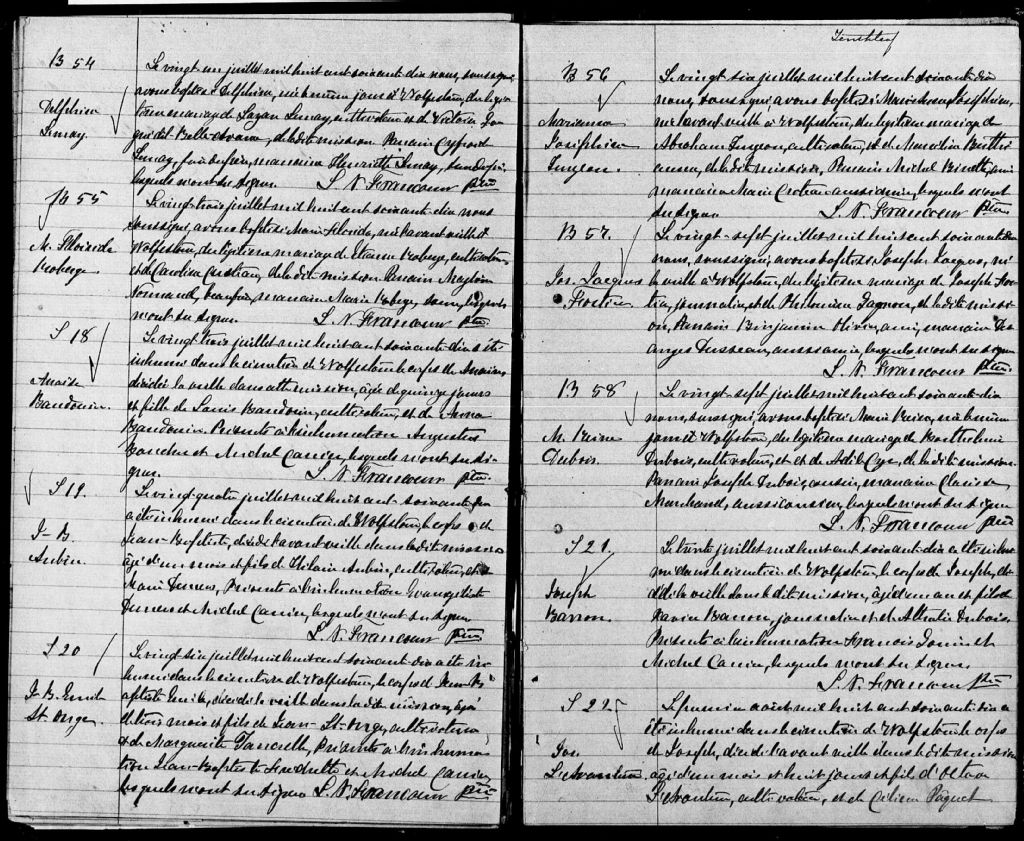 B 54
Delphine
Lemay.
Le vingt un juillet mil huit cent soixante dix nous, soussigné
avons baptisé Delphine, née le même jour à Wolfestown, du légi
time mariage de Lazare Lemay, cultivateur et de Victoria
dit Belle-, de la dite mission Parrain
Lemay, marraine Henriette Lemay,
lesquels n'ont su signer. L. N. Francoeur ptre
B 55
M. Floride
Roberge.
Le vingt trois juillet mil huit cent soixante dix nous
soussigné, avons baptisé Marie Floride, née l'avant veille à
Wolfestown, du légitime mariage de Etienne Roberge, cultivateur
et de Caroline, de la dite mission Parrain
Normand, marraine Marie Roberge, lesquels
n'ont su signer L. N. Francoeur ptre
S 18
Anaïse
Baudoin.
Le vingt trois juillet mil huit cent soixante dix a été
inhumé dans le cimetière de Wolfestown le corps de Anaïse
décédée la veille dans cette mission, âgée de quinze jours
et fille de Louis Baudoin, cultivateur, et de Anna
Baudoin. Présents à l'inhumation Augustin
et Michel Carrier, lesquels n'ont su si-
gner. L. N. Francoeur ptre
S 19.
J-B.
Aubin.
Le vingt quatre juillet mil huit cent soixante dix
a été inhumé dans le cimetière de Wolfestown, le corps de
Jean-Baptiste, décédé l'avant veille dans la dite mission
âgé d'un mois et fils de Hilaire Aubin, cultivateur, et de
Marie Demers, Présents à l'inhumation Evangeliste
Demers et Michel Carrier, lesquels n'ont su signer
L. N. Francoeur ptre
S 20
J-B. Emile
St. Onge.
Le vingt six juillet mil huit cent soixante dix a été in
humé dans le cimetière de Wolfestown, le corps de Jean B
aptiste Emile, décédé la veille dans la dite mission, âgé
de trois mois et fils de Jean St-Onge, cultivateur,
et de Marguerite, Présents à l'inhuma
tion Jean-Baptiste et Michel Carrier,
lesquels n'ont su signer L. N. Francoeur ptre
B 56
Marianne
Josephine
Turgeon.
Le vingt six juillet mil huit cent soixante dix
nous, soussigné avons baptisé Marianne Josephine,
née l'avant veille à Wolfestown, du légitime mariage de
Abraham Turgeon, cultivateur, et de
, de la dite mission, Parrain Michel, ami
marraine Marie Croteau aussi amie, lesquels n'ont
su signer L. N. Francoeur ptre
B 57.
Jos. Jacques
Fortin
Le vingt-sept juillet mil huit cent soixante dix
nous, soussigné, avons baptisé Joseph Jacques, né
la veille à Wolfestown, du légitime mariage de Joseph For
tin, journalier, et de Philomène Gagnon, de la dite missi-
on, Parrain Benjamin Olivier, ami, marraine Des
anges Dusseau, aussi amie, lesquels n'ont su signer
L. N. Francoeur ptre
B 58
M.
Dubois.
Le vingt-sept juillet mil huit cent soixante dix
nous, soussigné, avons baptisé Marie, née le même
jour à Wolfestown, du légitime mariage de Barthelemi
Dubois, cultivateur, et de Adele Cyr, de la dite mission
Parrain Joseph Dubois, cousin, marraine Clarisse
Marchand, aussi cousine, lesquels n'ont su signer
L. N. Francoeur ptre
S 21.
Joseph
Barron.
Le trente juillet mil huit cent soixante dix a été inhu
mé dans le cimetière de Wolfestown, le corps de Joseph, dé
cédé la veille dans la dite mission, âgé d'un an et fils de
Xavier Barron, journalier et de Dubois,
Présents à l'inhumation François et
Michel Carrier, lesquels n'ont su signer
L. N. Francoeur ptre
S 22.
Jos.
Le premier août mil huit cent soixante dix a
été inhumé dans le cimetière de Wolfestown le corps
de Joseph, décédé l'avant veille dans la dite mission
âgé d'un mois et huit jours et fils d'
, cultivateur, et de Paquet